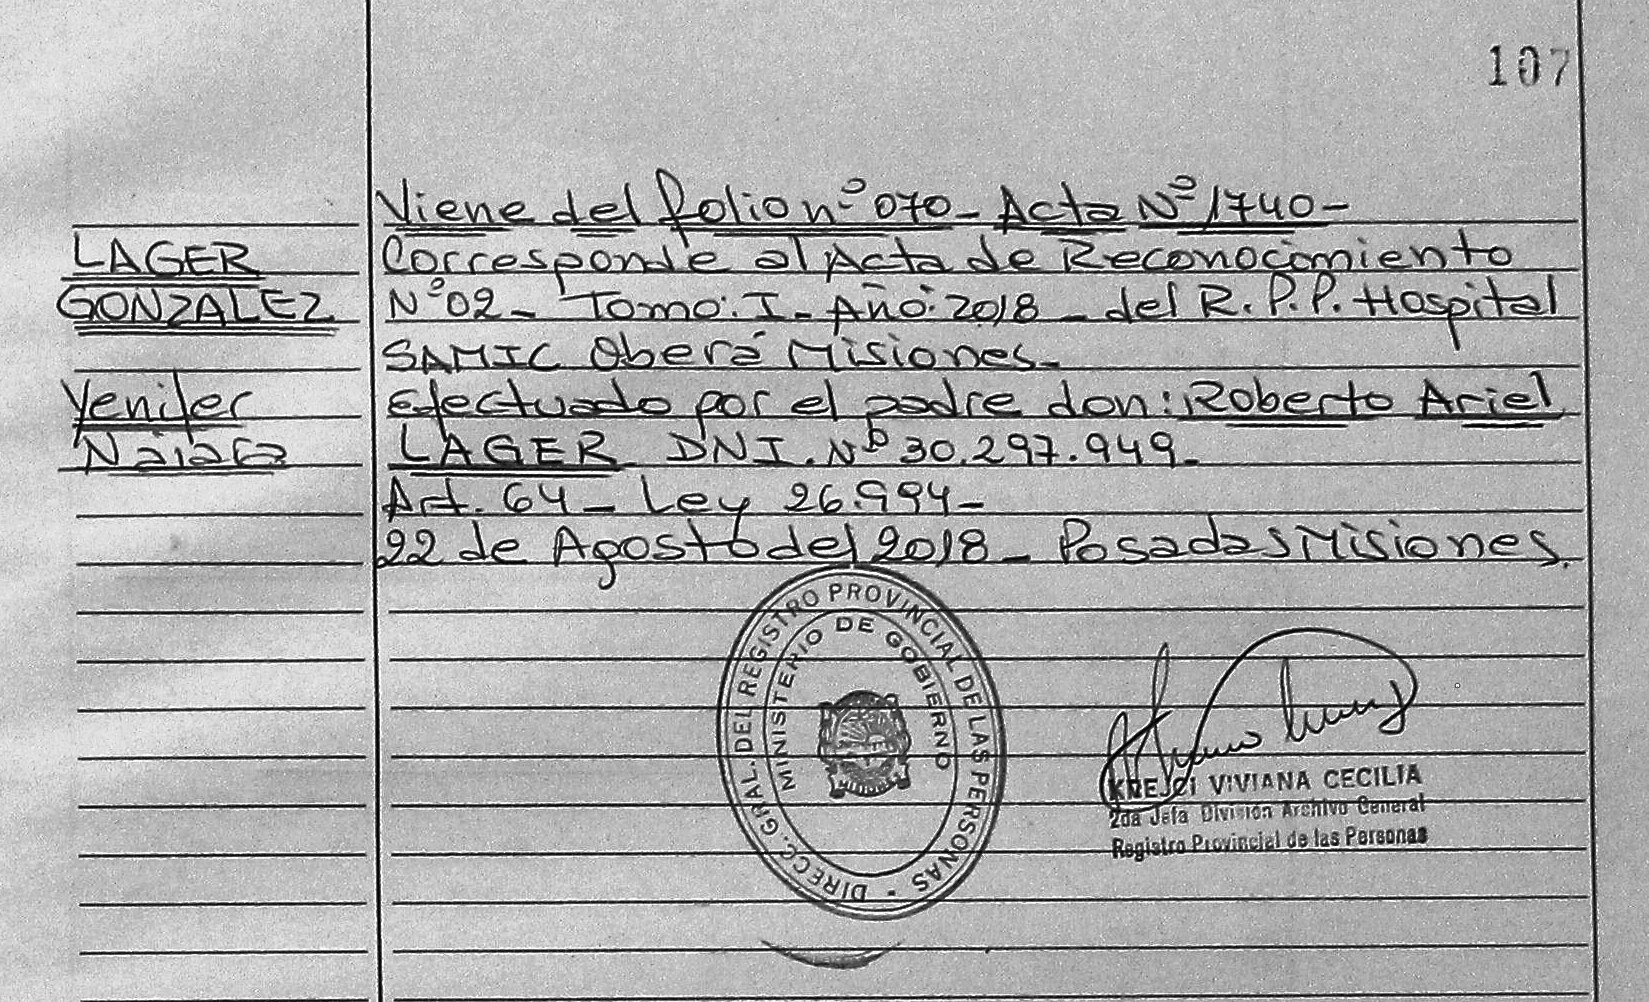 107
Viene del folio nº 070- Acta Nº 1740-
LAGER
GONZALEZ
Yenifer
Naiara
Corresponde al Acta de Reconocimiento
Nº 02- Tomo: I- Año: 2018- del R.P.P. Hospital
SAMIC Oberá Misiones-
Efectuado por el padre don: Roberto Ariel
LAGER DNI. Nº 30.297.949-
Art. 64- Ley 26.994-
22 de Agosto del 2018- Posadas Misiones.
DIRECC. GRAL. DEL REGISTRO PROVINCIAL DE LAS PERSONAS -
MINISTERIO DE GOBIERNO
KREJCI VIVIANA CECILIA
2da Jefa División Archivo General
Registro Provincial de las Personas